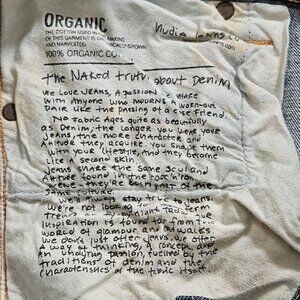 ORGANIC
THE COTTON USED IN
OF THIS GARMENT IS
AND HARVESTED ORGANICALLY GROWN
100% ORGANIC CO
Nudie Jeans Co
The Naked truth about Denim
We love jeans, a passion we share
with anyone who mourns a worn-out
pair like the passing of a close friend.
No fabric ages quite as beautifully
as Denim, the longer you wear your
jeans, the more character and
attitude they acquire. You shape them
with your lifestyle, and they become
like a second skin.
Jeans share the same soul and
attitude found in the rock'n'roll
they're both part of the
same culture.
We'll always stay true to jeans.
We're not looking for short-term
trends
inspiration is found far from the
world of glamour and catwalks
We don't just offer jeans, we offer
a way of thinking, a concept, and
an undying passion, fuelled by the
traditions of denim and the
characteristics of the fabric itself.